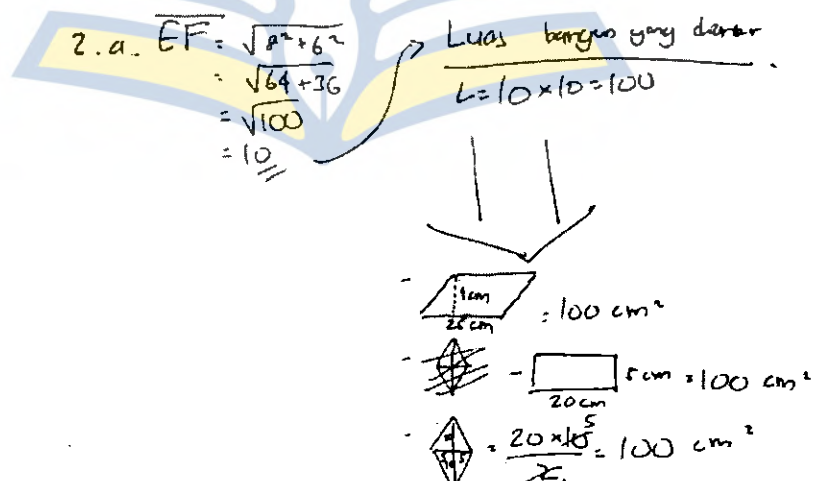 2.a. EF = √8²+6²
= √64+36
= √100
= 10
Luas bangun yang
L=10×10=100
- 4cm 25cm = 100 cm²
- 5cm 20cm = 100 cm²
- = 20×10 5 / 2 = 100 cm²